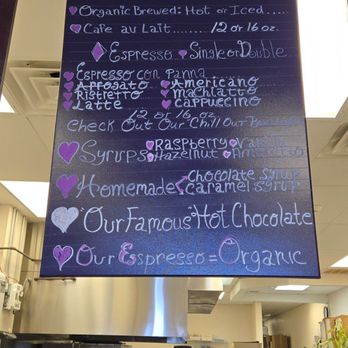 Organic Brewed: Hot or Iced.....
Cafe au Lait....... 12 or 16 oz.
Espresso Single or Double
Espresso con panna
Affogato Americano
Ristretto Machiatto
Latte Cappuccino
12 or 16 oz
Check Out Our Chill Out
Syrups Raspberry Vanilla
Hazelnut Amaretto
Homemade Chocolate syrup
caramel syrup
Our Famous Hot Chocolate
Our Espresso = Organic